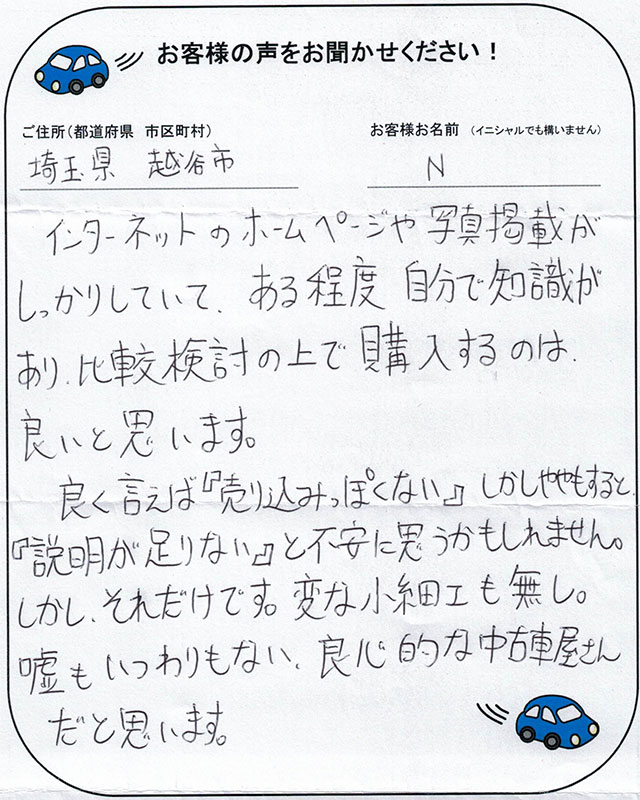 お客様の声をお聞かせください！
ご住所（都道府県　市区町村）
お客様お名前　（イニシャルでも構いません）
埼玉県　越谷市
N
インターネットのホームページや写真掲載が
しっかりしていて、ある程度自分で知識が
あり、比較検討の上で購入するのは、
良いと思います。
良く言えば『売り込みっぽくない』しかしややもすると、
『説明が足りない』と不安に思うかもしれません。
しかし、それだけです。変な小細工も無し。
嘘もいつわりもない、良心的な中古車屋さん
だと思います。